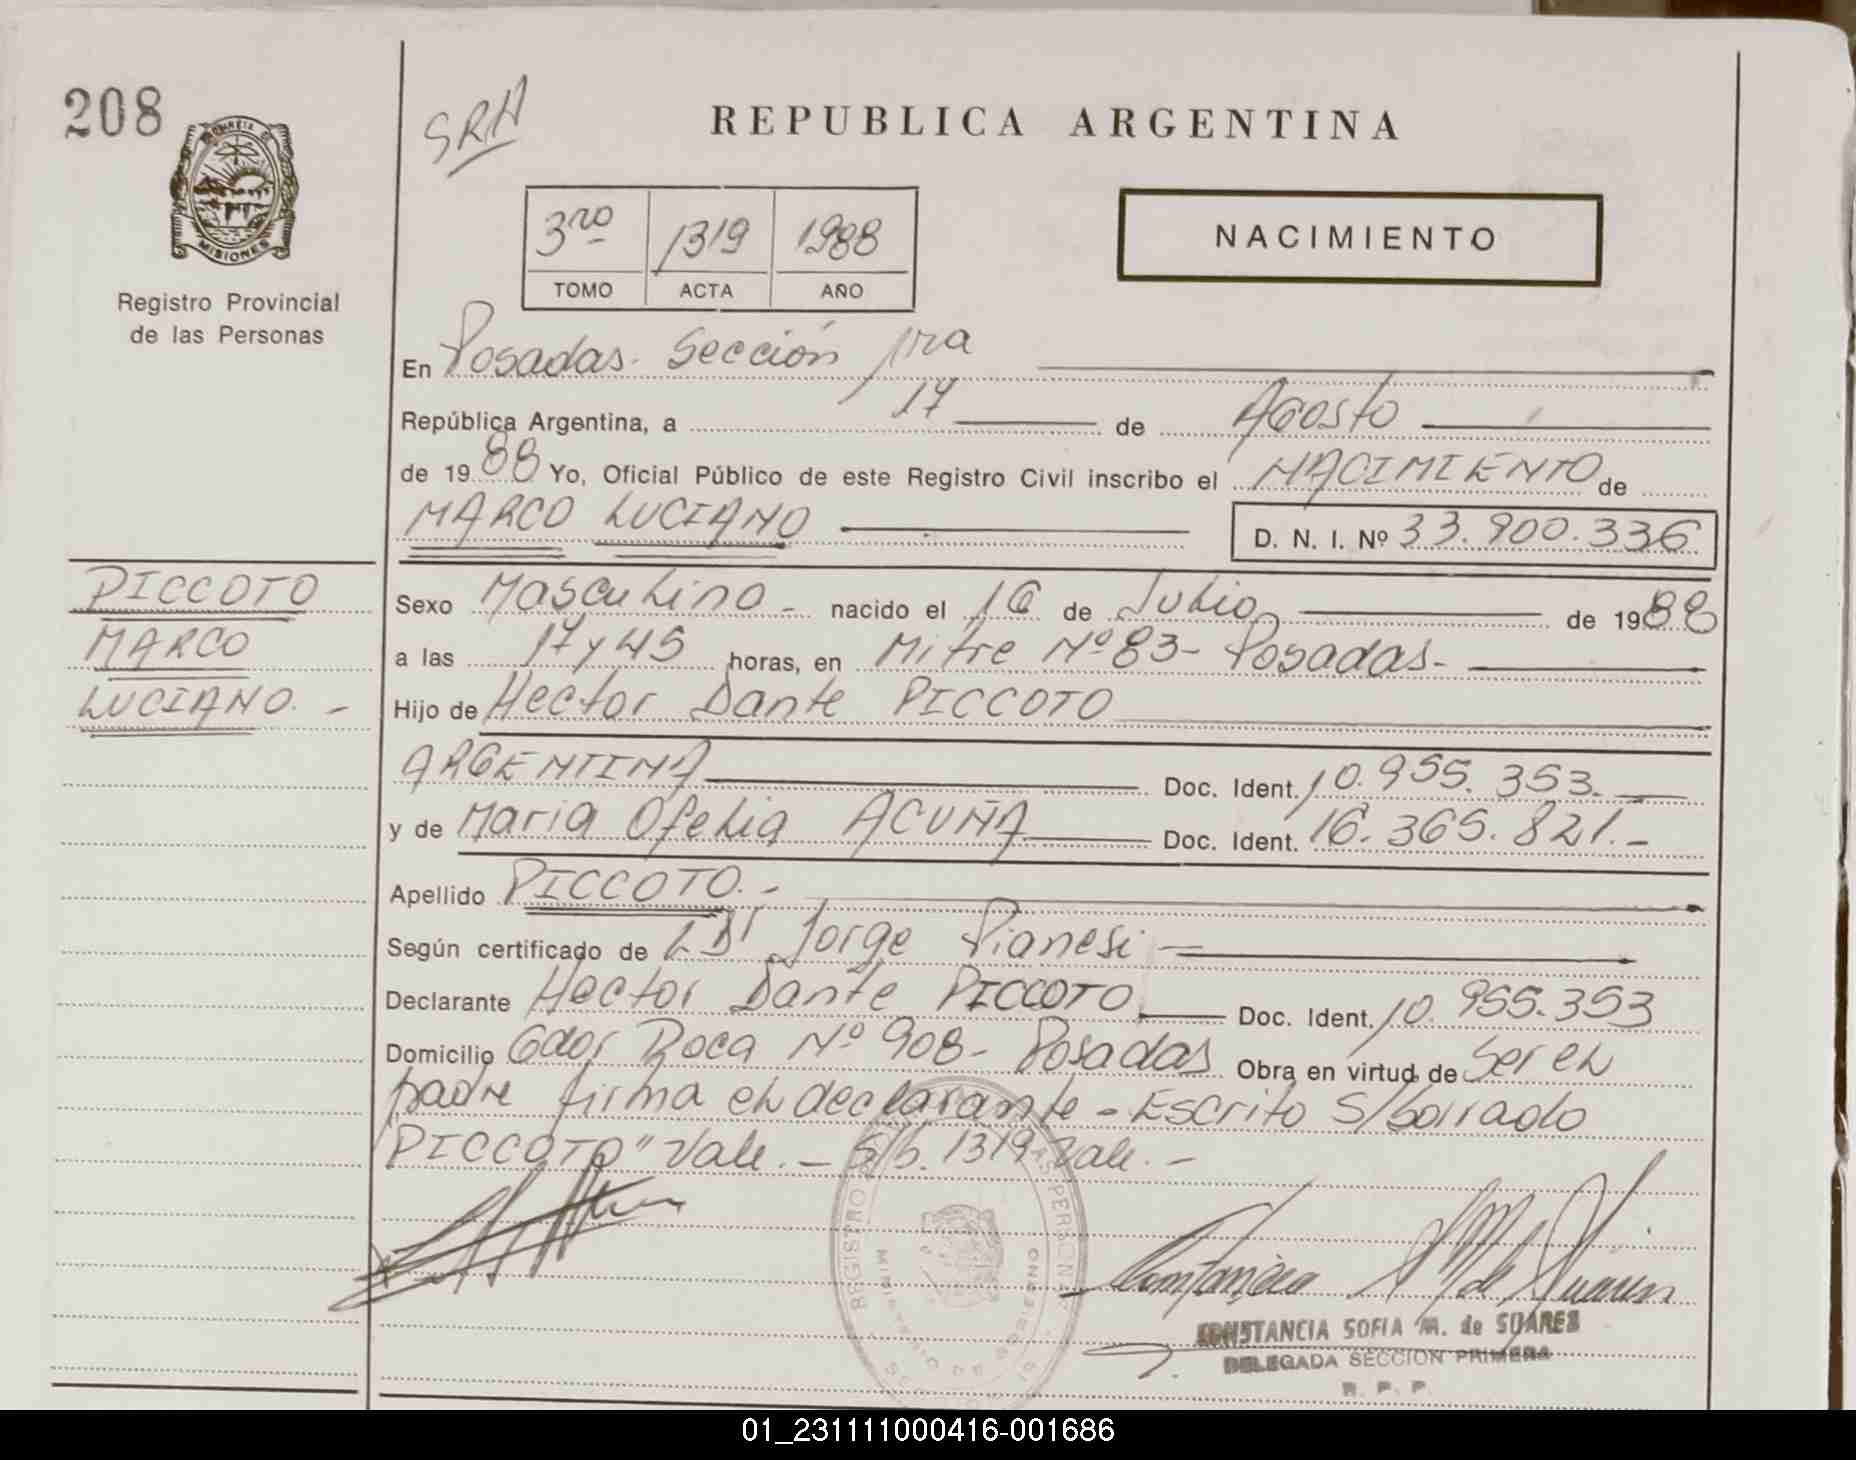 208
SRH
REPUBLICA ARGENTINA
PROVINCIA DE
MISIONES
Registro Provincial
de las Personas
3ro 1319 1988
TOMO ACTA AÑO
NACIMIENTO
En Posadas. Sección 1ra
República Argentina, a 17 de Agosto
de 1988 Yo, Oficial Público de este Registro Civil inscribo el NACIMIENTO de
MARCO LUCIANO D. N. I. Nº 33.900.336
PICCOTO
MARCO
LUCIANO. -
Sexo Masculino - nacido el 16 de Julio de 1988
a las 17 y 45 horas, en Mitre Nº 83 - Posadas -
Hijo de Hector Dante PICCOTO
ARGENTINA Doc. Ident. 10.955.353. -
y de Maria Ofelia ACUÑA Doc. Ident. 16.365.821. -
Apellido PICCOTO. -
Según certificado de Dr Jorge Pianesi
Declarante Hector Dante PICCOTO Doc. Ident. 10.955.353
Domicilio Gdor Roca Nº 908 - Posadas Obra en virtud de ser el
padre firma el declarante - Escrito S/borrado
PICCOTO" Vale. - S/b. 1319 Vale. -
Constancia M de Suares
CONSTANCIA SOFIA M. de SUARES
DELEGADA SECCION PRIMERA
R. P. P.
01_231111000416-001686